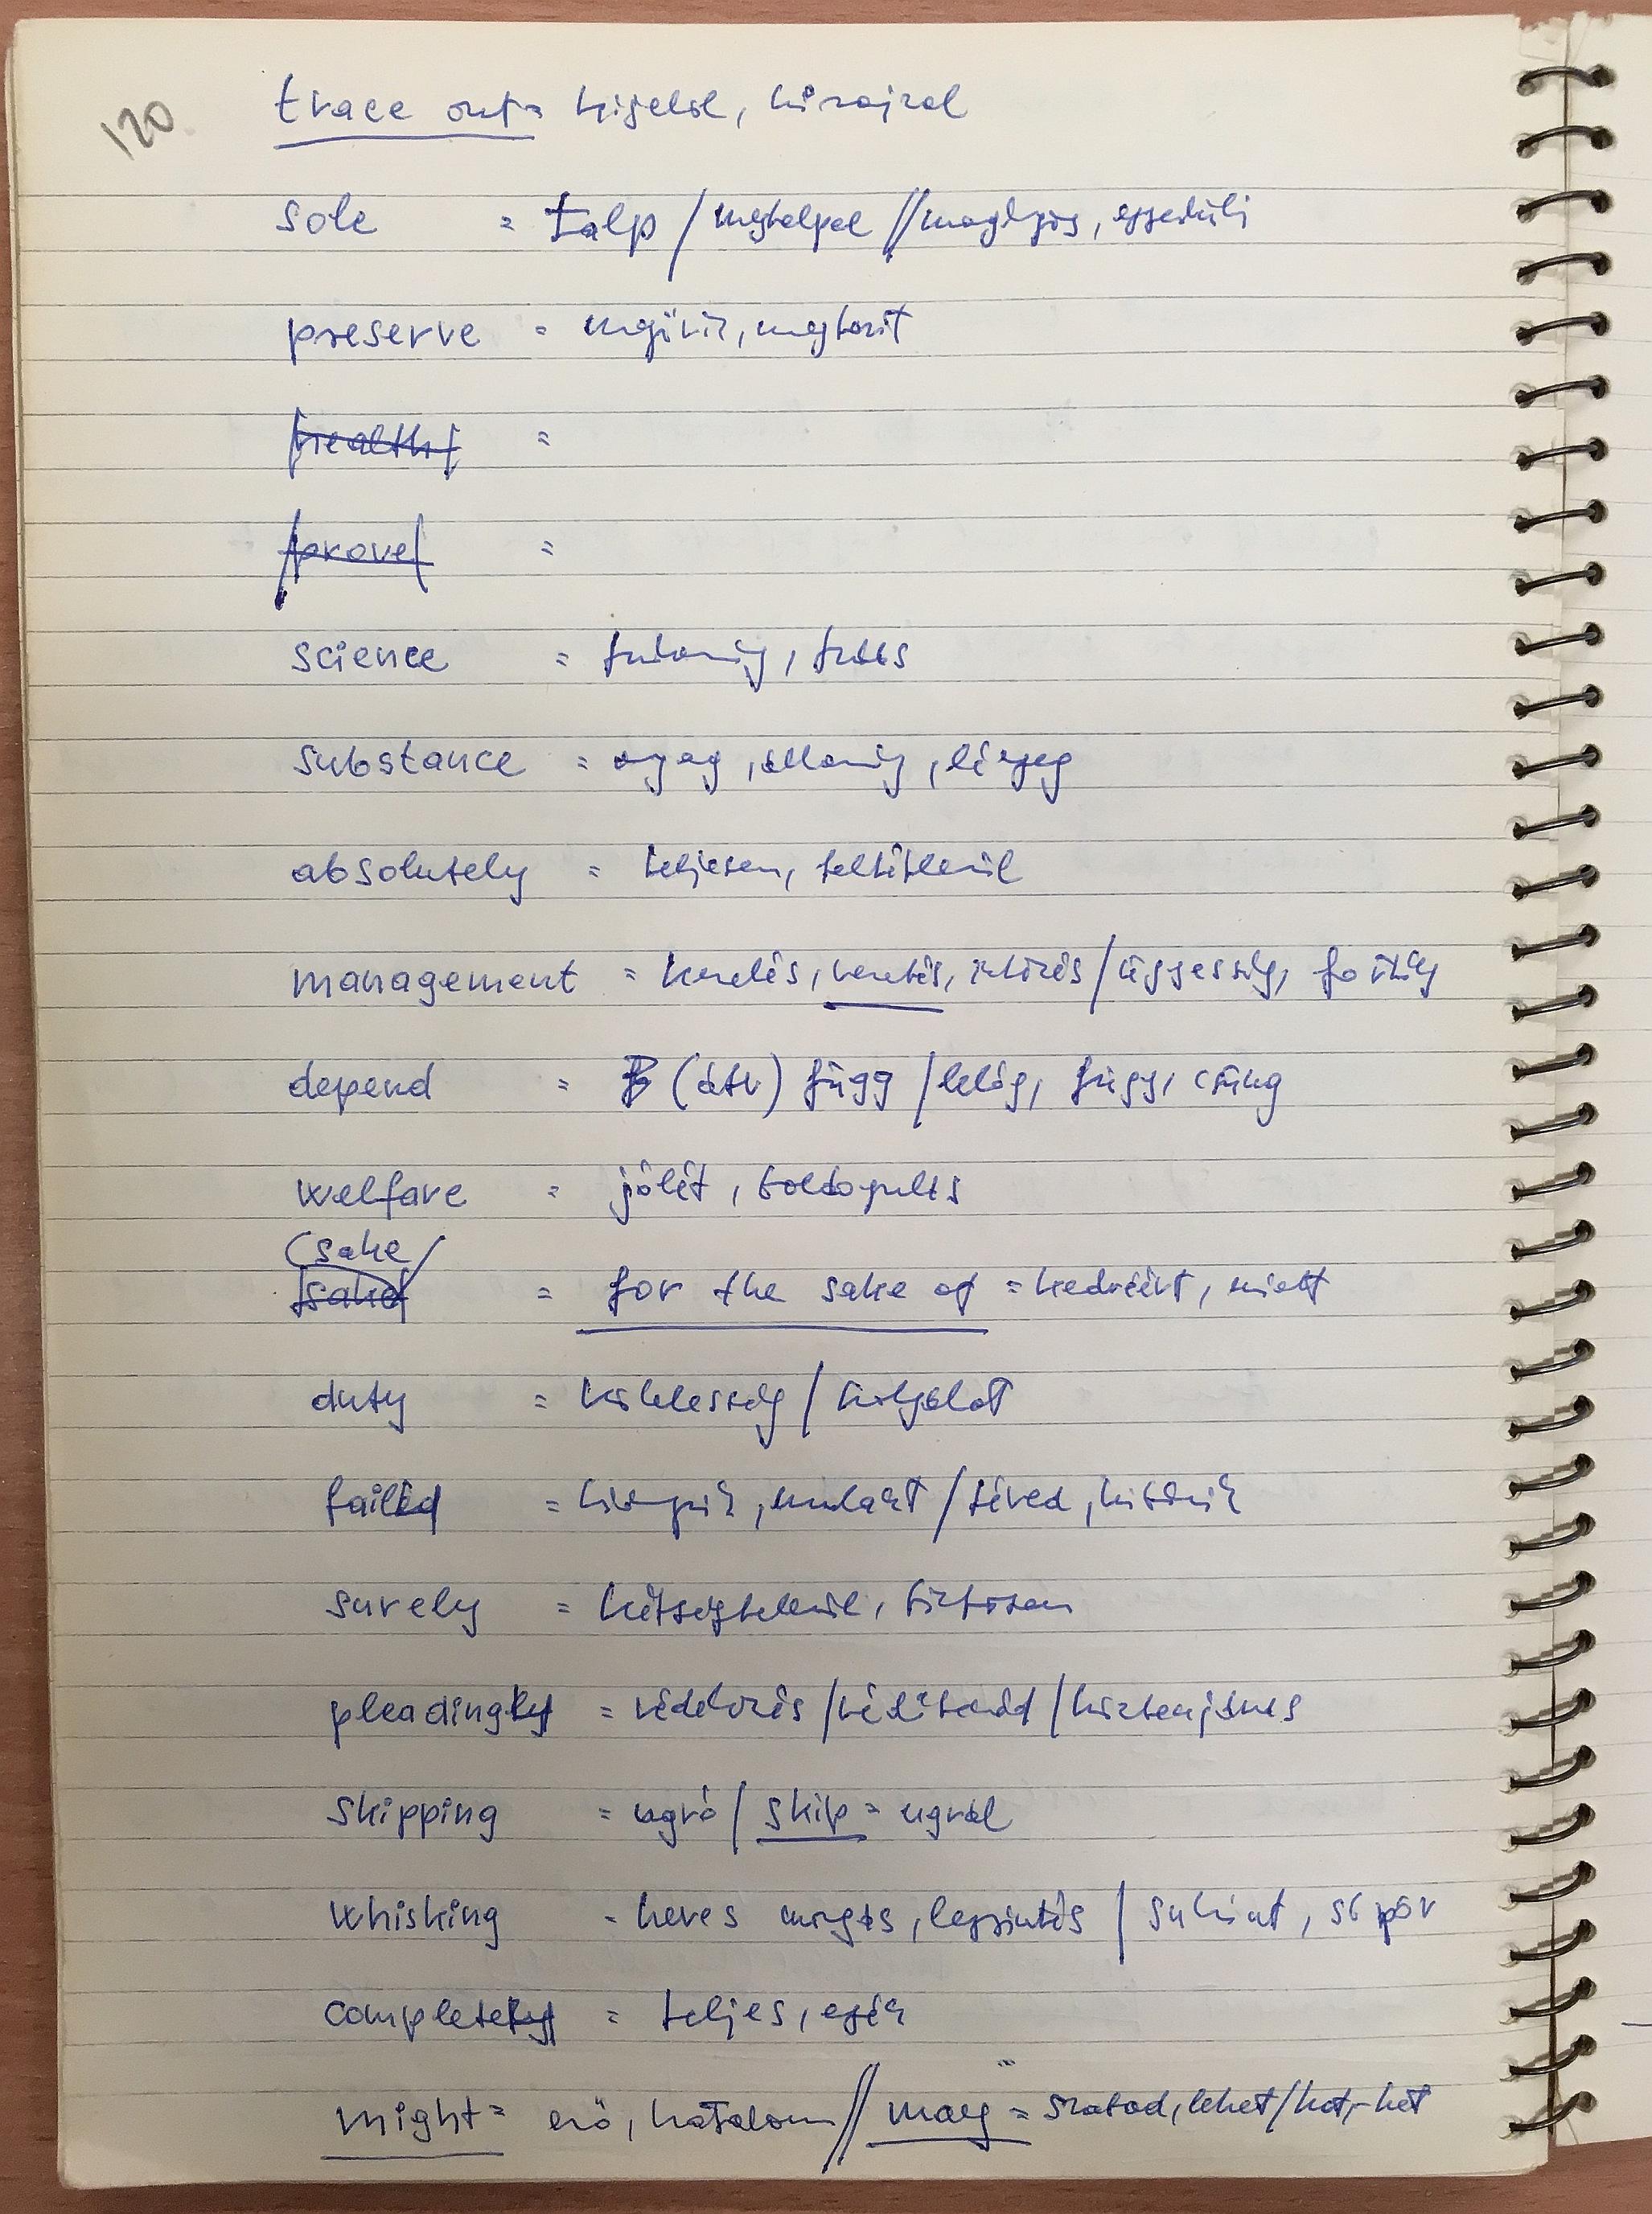 120
trace out = kijelöl, kirajzol
sole = talp / megtalpal // magányos, egyedüli
preserve = megőriz, megtart
healthy =
prove =
science = tudomány, tudás
substance = anyag, állomány, lényeg
absolutely = teljesen, feltétlenül
management = kezelés, vezetés, intézés / ügyesség, fortély
depend = (átv) függ / lelóg, függ, csüng
welfare = jólét, boldogulás
(sake)
sake = for the sake of = kedvéért, miatt
duty = kötelesség / szolgálat
failed = hiányzik, mulaszt / téved, hibázik
surely = kétségtelenül, biztosan
pleadingly = védekezés / védőbeszéd / közbenjárás
skipping = ugró / skip = ugrál
whisking = heves mozgás, legyintés / suhint, söpör
completely = teljes, egész
might = erő, hatalom // may = szabad, lehet / hat, -het